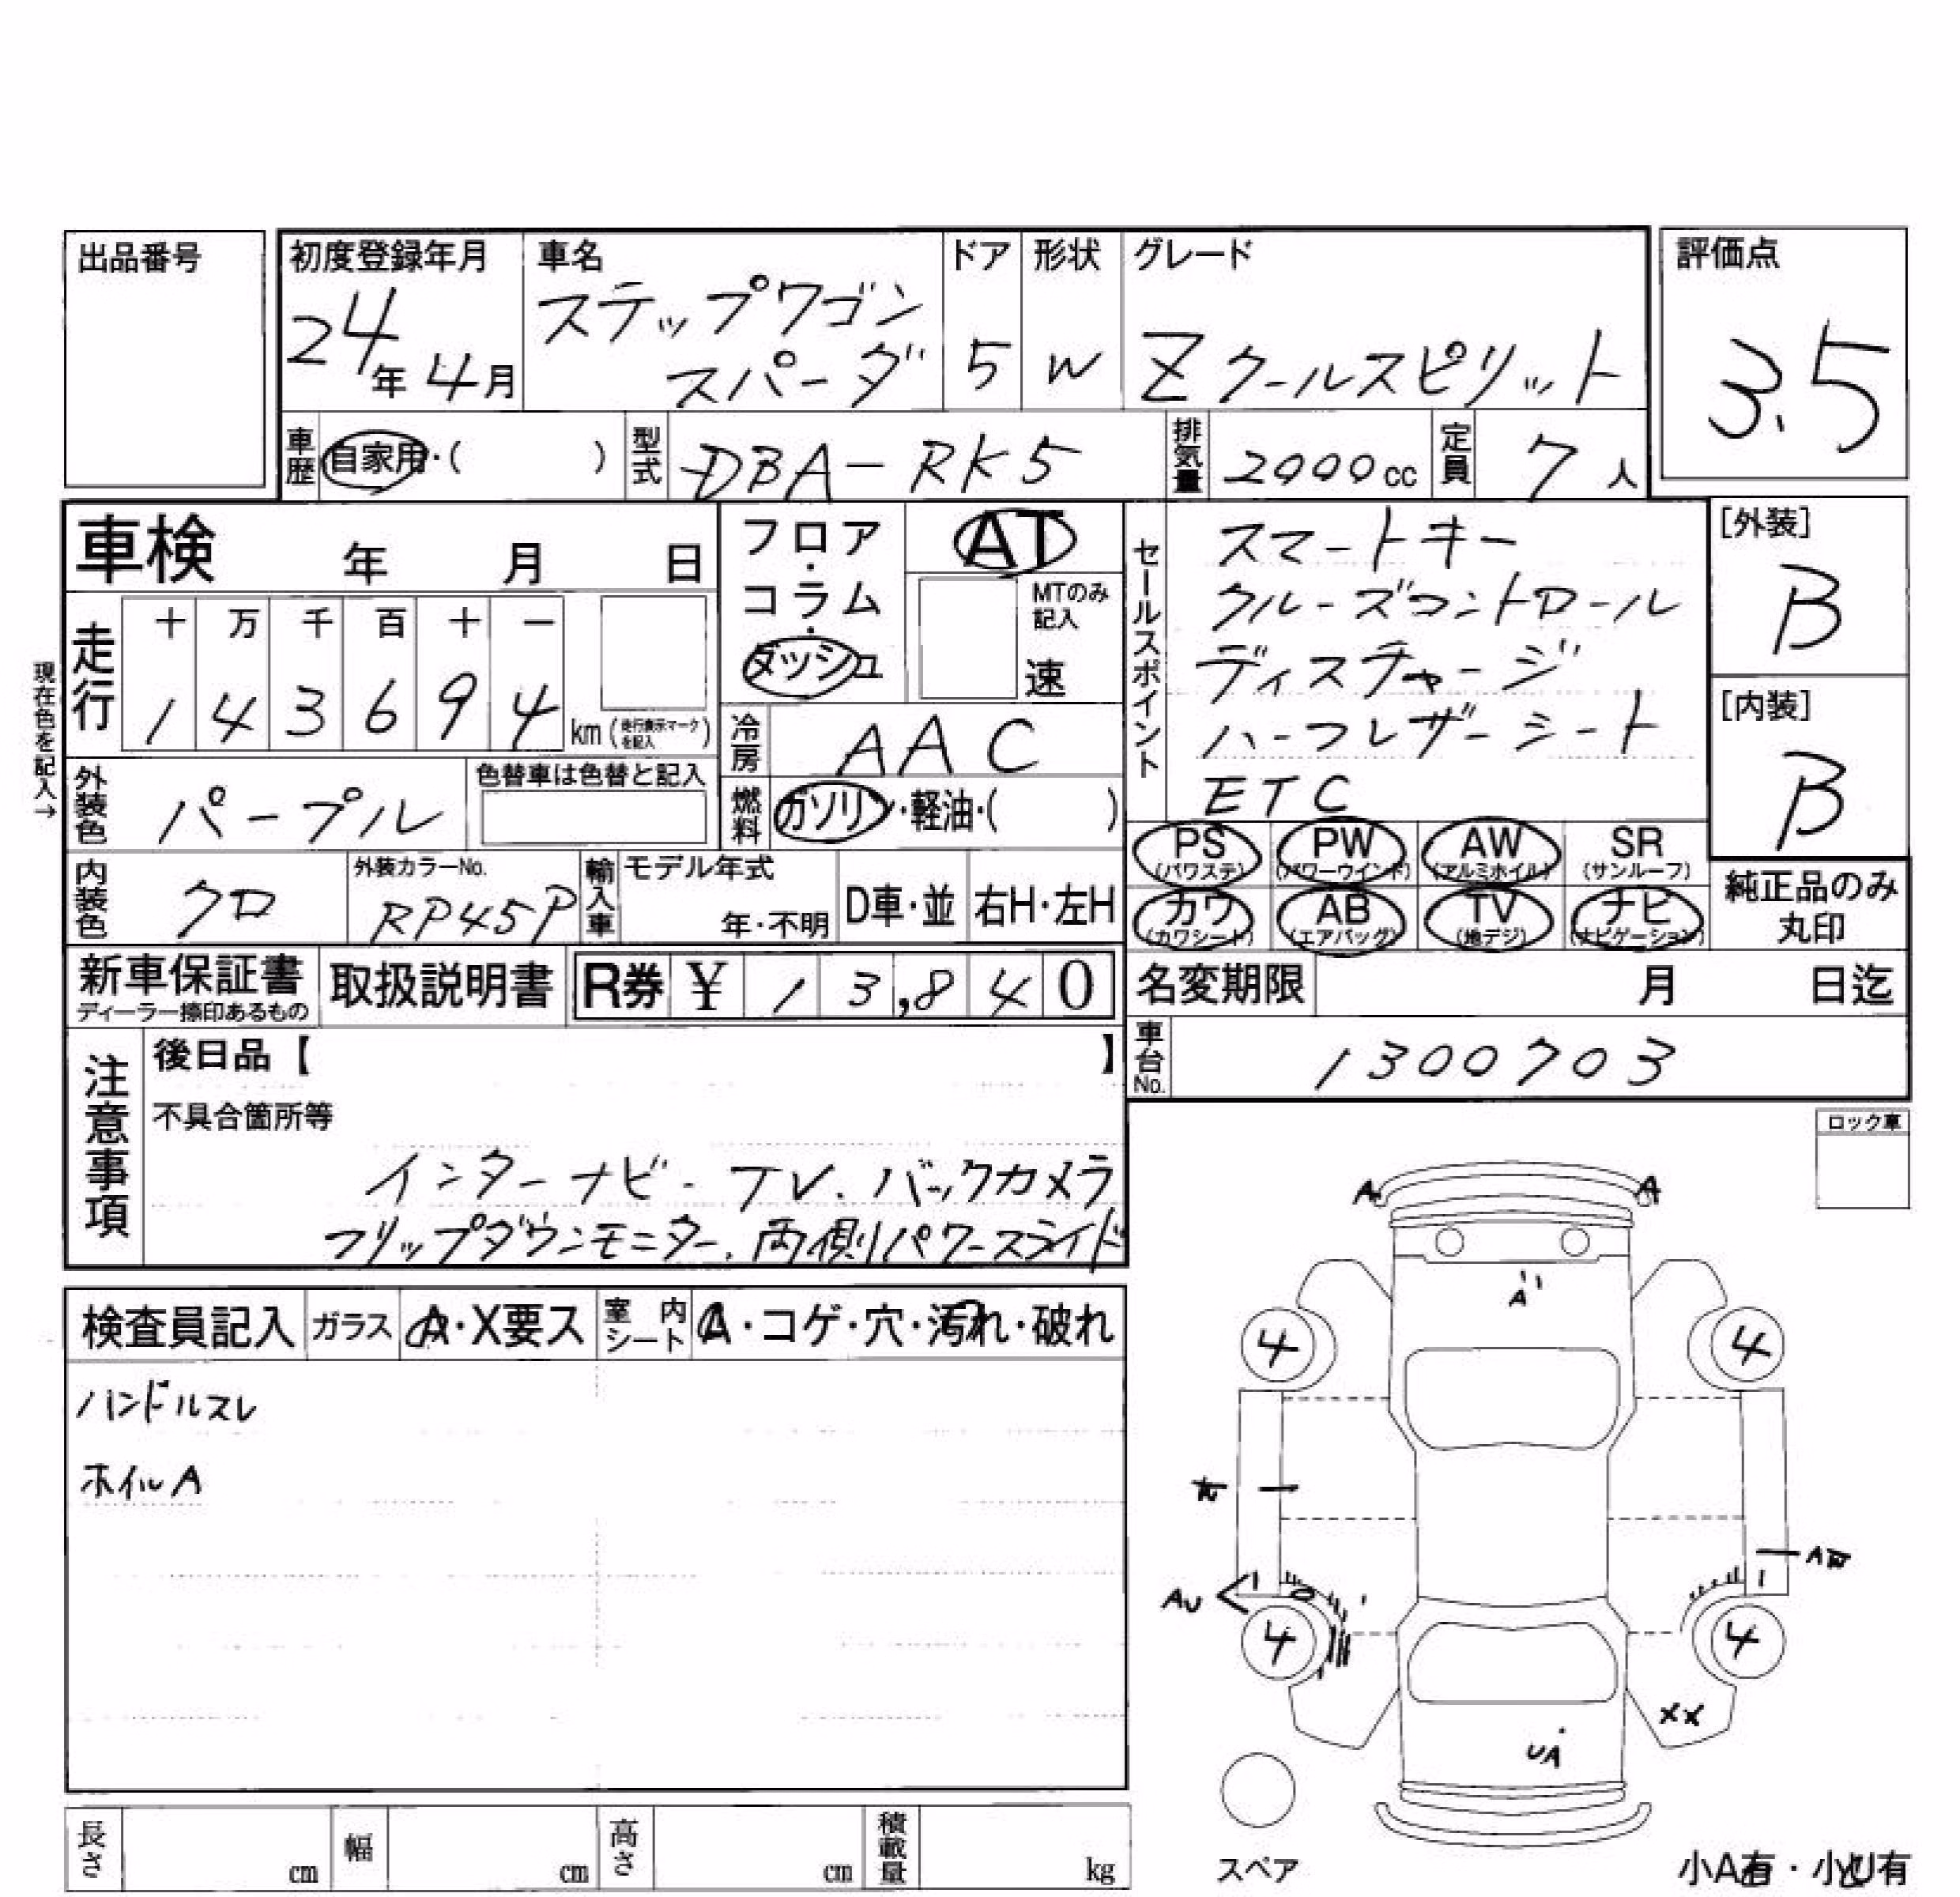 出品番号
初度登録年月 車名 ドア 形状 グレード 評価点
24年4月 ステップワゴン スパーダ 5 W Zクールスピリット 3.5
車歴 自家用・( ) 型式 DBA-RK5 排気量 2000cc 定員 7人
車検 年 月 日
フロア・コラム・ダッシュ AT
MTのみ記入 速
セールスポイント
スマートキー
クルーズコントロール
ディスチャージ
ハーフレザーシート
ETC
[外装]
B
[内装]
B
現在色を記入→
走行 十 万 千 百 十 一
1 4 3 6 9 4 km (走行表示マークを記入)
冷房 AAC
外装色 パープル 色替車は色替と記入
燃料 ガソリン・軽油・( )
PS (パワステ) PW (パワーウインド) AW (アルミホイル) SR (サンルーフ)
カワ (カワシート) AB (エアバッグ) TV (地デジ) ナビ (ナビゲーション)
純正品のみ丸印
内装色 クロ 外装カラーNo. RP45P 輸入車 モデル年式 年・不明 D車・並 右H・左H
新車保証書 ディーラー捺印あるもの 取扱説明書 R券 ¥ 13,840
名変期限 月 日迄
車台No. 1300703
注意事項 後日品【 】
不具合箇所等
インターナビ. TV. バックカメラ
フリップダウンモニター. 両側パワースライド
ロック車
検査員記入 ガラス A・X要ス 室内シート A・コゲ・穴・汚れ・破れ
ハンドルスレ
ホイルA
A A
A
4 4
AU
4 4
XX
UA
スペア
長さ cm 幅 cm 高さ cm 積載量 kg
小A有・小U有